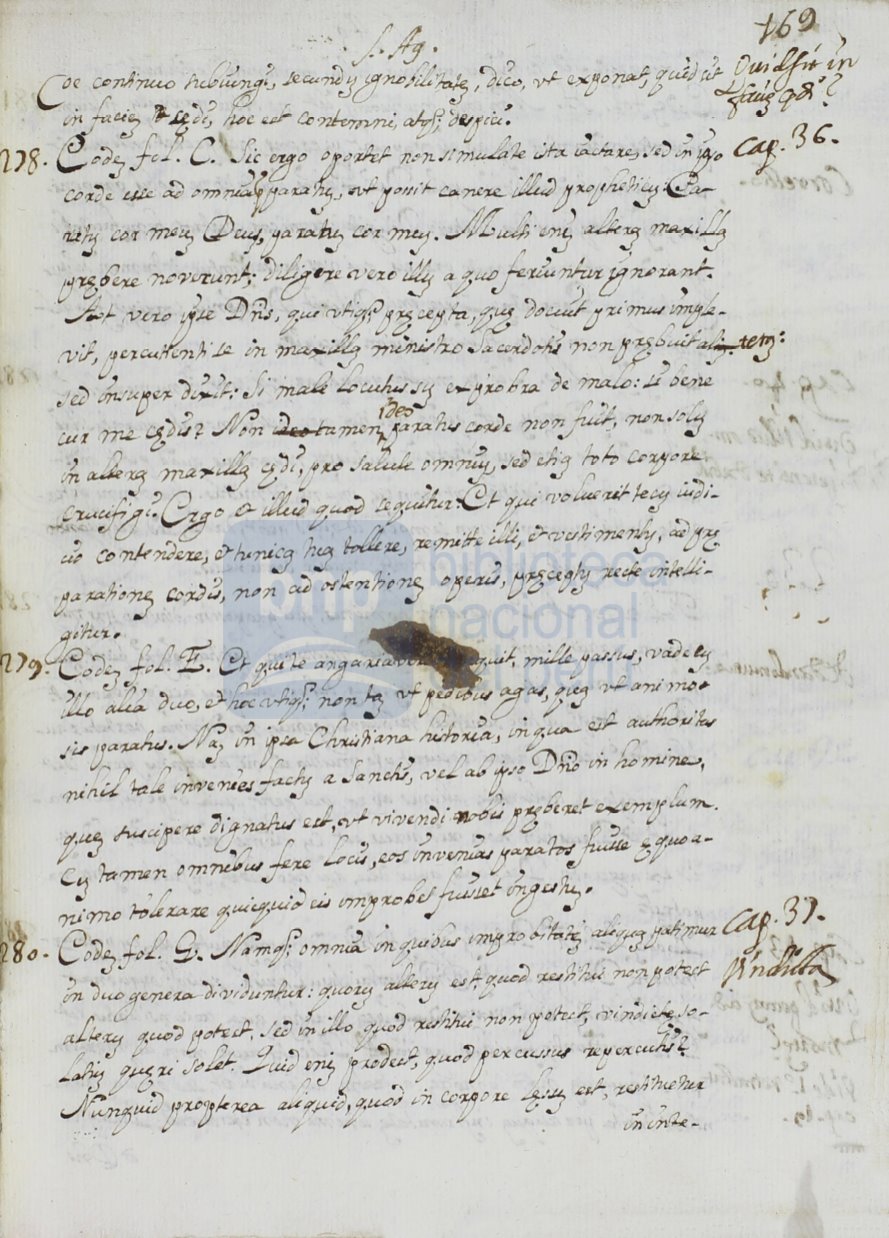 169
S. Ag.
Coe continuo subiungi, secundũ ignobilitatẽ, dico, vt exponat, quid sit
Quid sit in
in faciẽ cędi, hoc est contemni, atq; despici.
faciẽ cędi?
278. Codẽ fol. C. Sic ergo oportet non simulate ista iactare, sed in ipso
cap. 36.
corde esse ad omnia paratũ, vt possit canere illud propheticũ: Pa-
ratũ cor meũ Deus, paratũ cor meũ. Multi enĩ alterã maxillã
prębere noverunt; diligere vero illũ a quo feriuntur ignorant.
At vero ipse Dñs, qui vtiq; pręcepta, quę docuit primus imple-
vit, percutienti se in maxillã ministro Sacerdotis non prębuit alterã:
sed insuper dixit: Si male locutus sũ exprobra de malo: si bene
cur me cędis? Non ideo tamen ideo paratus corde non fuit, non solũ
in alterã maxillã cędi, pro salute omniũ, sed etiã toto corpore
crucifigi. Ergo & illud quod sequitur: Et qui voluerit tecũ iudi-
cio contendere, et tunicã tuã tollere, remitte illi, et vestimentũ, ad prę
parationẽ cordis, non ad ostentionẽ operis, pręceptũ recte intelli-
gitur.
279. Codẽ fol. E. Et qui te angariaverit inquit, mille passus, vade cũ
illo alia duo, et hoc vtiq; non tã vt pedibus agas, quã vt animo
sis paratus. Nã in ipsa Christiana historia, in qua est authoritas
nihil tale invenies factũ a Sanctis, vel ab ipso Dño in homine,
quẽ suscipere dignatus est, vt vivendi nobis pręberet exemplum.
Cũ tamen omnibus fere locis, eos invenias paratos fuisse ęquo a-
nimo tolerare quicquid eis improbe fuisset ingestũ.
280. Codẽ fol. G. Namq; omnia in quibus improbitatẽ aliquã patimur
cap. 37.
in duo genera dividuntur: quorũ alterũ est quod restitui non potest
Vindicta
alterũ quod potest. Sed in illo quod restitui non potest, vindictę so-
latiũ quęri solet. Quid enĩ prodest, quod percussus repercutis?
Nunquid propterea aliquid, quod in corpore lęsũ est, restituetur
in inte-
biblioteca
nacional
del perú